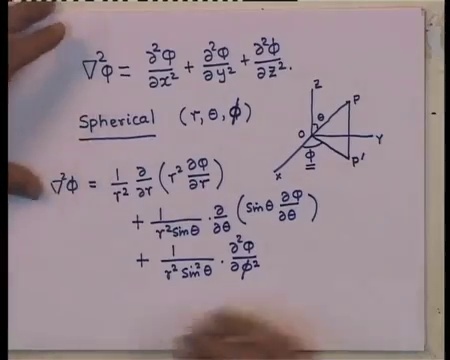 ∇²φ = ∂²φ/∂x² + ∂²φ/∂y² + ∂²φ/∂z².
Spherical (r, θ, ϕ)
Z
P
θ
O
Y
ϕ
X
P'
∇²φ = 1/r² ∂/∂r (r² ∂φ/∂r)
+ 1/r²sinθ · ∂/∂θ (sinθ ∂φ/∂θ)
+ 1/r²sin²θ · ∂²φ/∂ϕ²